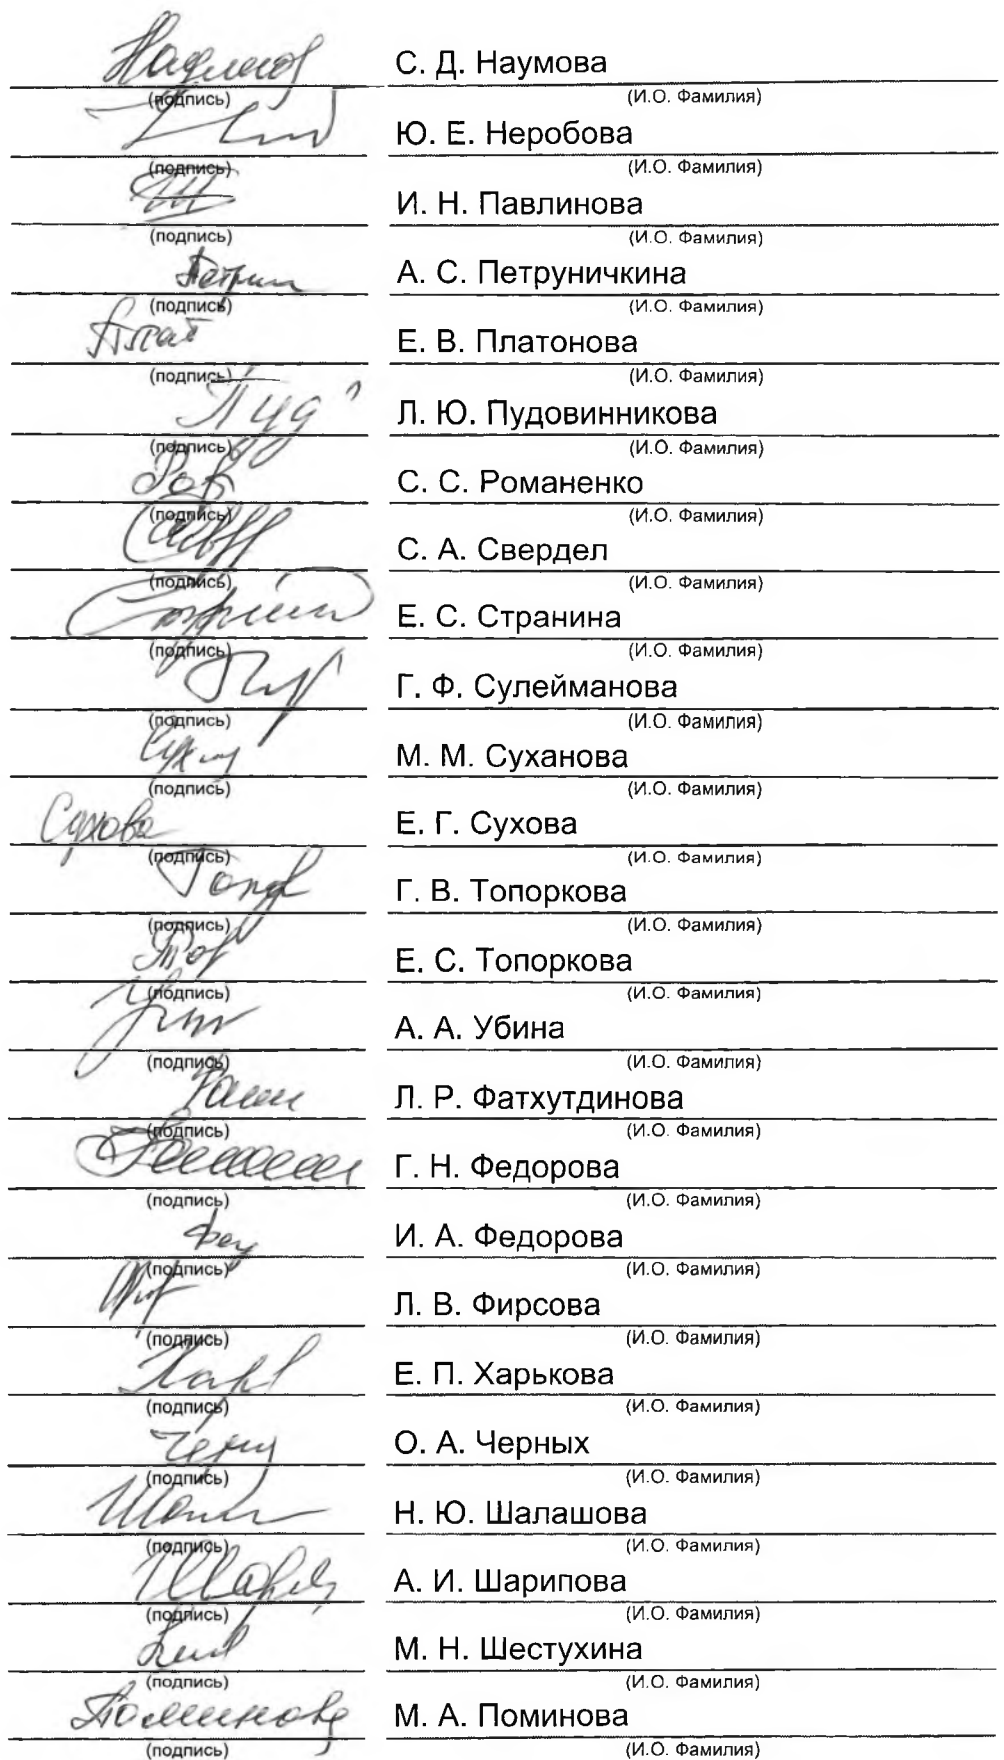 С. Д. Наумова
(подпись) (И.О. Фамилия)
Ю. Е. Неробова
(подпись) (И.О. Фамилия)
И. Н. Павлинова
(подпись) (И.О. Фамилия)
Петрун А. С. Петруничкина
(подпись) (И.О. Фамилия)
Плат Е. В. Платонова
(подпись) (И.О. Фамилия)
Пуд Л. Ю. Пудовинникова
(подпись) (И.О. Фамилия)
С. С. Романенко
(подпись) (И.О. Фамилия)
С. А. Свердел
(подпись) (И.О. Фамилия)
Е. С. Странина
(подпись) (И.О. Фамилия)
Г. Ф. Сулейманова
(подпись) (И.О. Фамилия)
М. М. Суханова
(подпись) (И.О. Фамилия)
Сухова Е. Г. Сухова
(подпись) (И.О. Фамилия)
Г. В. Топоркова
(подпись) (И.О. Фамилия)
Е. С. Топоркова
(подпись) (И.О. Фамилия)
А. А. Убина
(подпись) (И.О. Фамилия)
Л. Р. Фатхутдинова
(подпись) (И.О. Фамилия)
Г. Н. Федорова
(подпись) (И.О. Фамилия)
И. А. Федорова
(подпись) (И.О. Фамилия)
Л. В. Фирсова
(подпись) (И.О. Фамилия)
Е. П. Харькова
(подпись) (И.О. Фамилия)
О. А. Черных
(подпись) (И.О. Фамилия)
Н. Ю. Шалашова
(подпись) (И.О. Фамилия)
А. И. Шарипова
(подпись) (И.О. Фамилия)
М. Н. Шестухина
(подпись) (И.О. Фамилия)
Поминова М. А. Поминова
(подпись) (И.О. Фамилия)